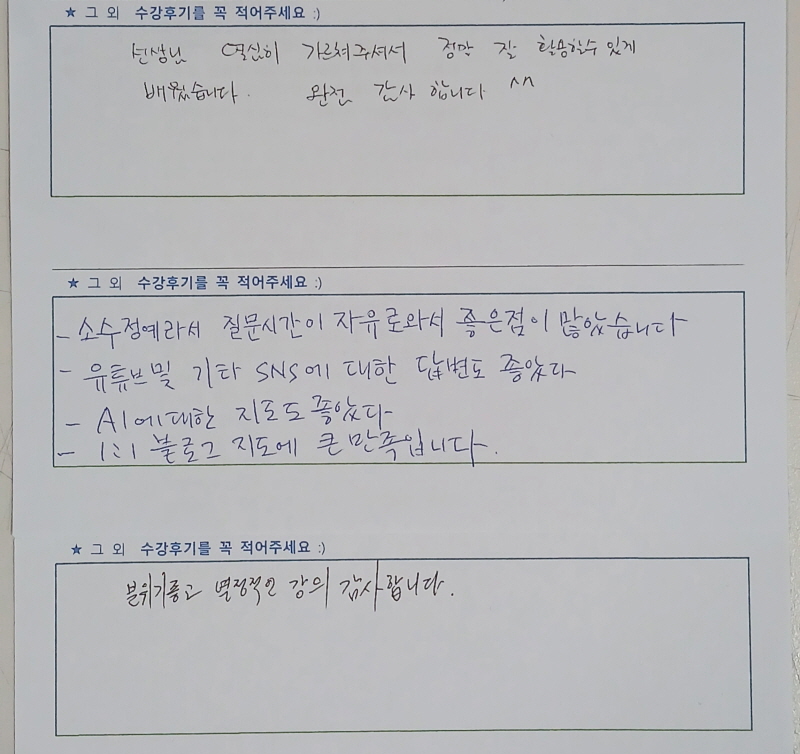 ★ 그 외 수강후기를 꼭 적어주세요 :)
선생님 열심히 가르쳐주셔서 정말 잘 활용할수 있게
배웠습니다. 완전 감사 합니다 ^^
★ 그 외 수강후기를 꼭 적어주세요 :)
- 소수정예라서 질문시간이 자유로와서 좋은점이 많았습니다
- 유튜브및 기타 SNS에 대한 답변도 좋았다
- AI에대한 지도도 좋았다
- 1:1 블로그 지도에 큰 만족입니다.
★ 그 외 수강후기를 꼭 적어주세요 :)
분위기좋고 열정적인 강의 감사합니다.